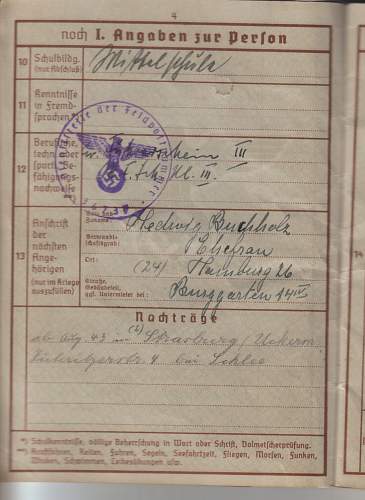 4
noch I. Angaben zur Person
10 Schulbildg. (nur Abschluß) Mittelschule
11 Kenntnisse in Fremd-sprachen*)
12 Berufliche, techn. oder sportl. Be-fähigungs-nachweise
III
Kl. III.
13 Anschrift der nächsten Ange-hörigen (nur im Kriege auszufüllen)
Hedwig Buchholz
Verwandt-schaftsgrad: Ehefrau
Ort: (24) Hamburg 26
Straße, Gebäudeteil, ggf. Untermieter bei: Burggarten 14 IV
Nachträge
ab Aug. 43 in Strasburg/Uckerm.
4 bei
*) Schulkenntnisse, völlige Beherrschung in Wort oder Schrift, Dolmetscherprüfung.
**) Kraftfahren, Reiten, Fahren, Segeln, Seefahrtzeit, Fliegen, Morsen, Funken,
Winken, Schwimmen, Leibesübungen usw.
14